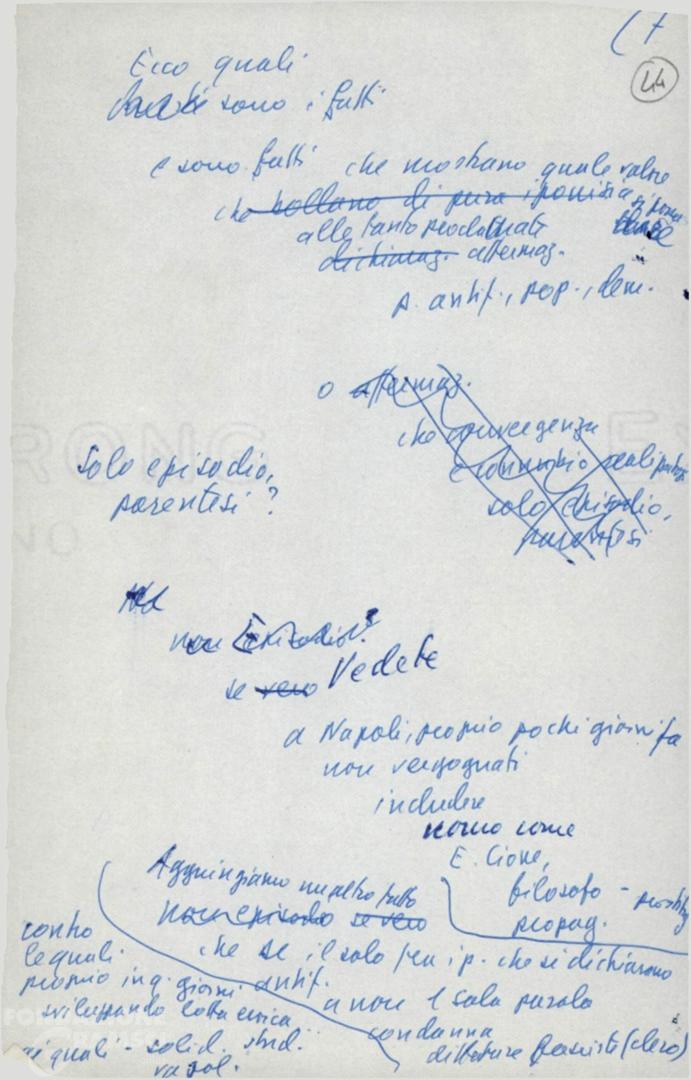 (7
44
Ecco quali
sono i fatti
e sono fatti che mostrano quale valore
che bollano di pura ipocrisia si possa
alle tanto proclamate dare
dichiaraz. affermaz.
p. antif., pop., dem.
o affermaz.
che convergenza
connubio
solo episodio,
parentesi
Solo episodio,
parentesi?
Ma
non Episodio?
se vero Vedete
a Napoli, proprio pochi giorni fa
non vergognati
includere
uomo come
E. Cione,
filosofo -
propag.
Aggiungiamo un altro fatto
non episodio se vero
che se il solo fra i p. che si dichiarano
antif.
a non 1 sola parola
condanna
dittature fasciste (clero)
contro
le quali
proprio in q. giorni
sviluppando lotta eroica
ai quali - solid. ind.